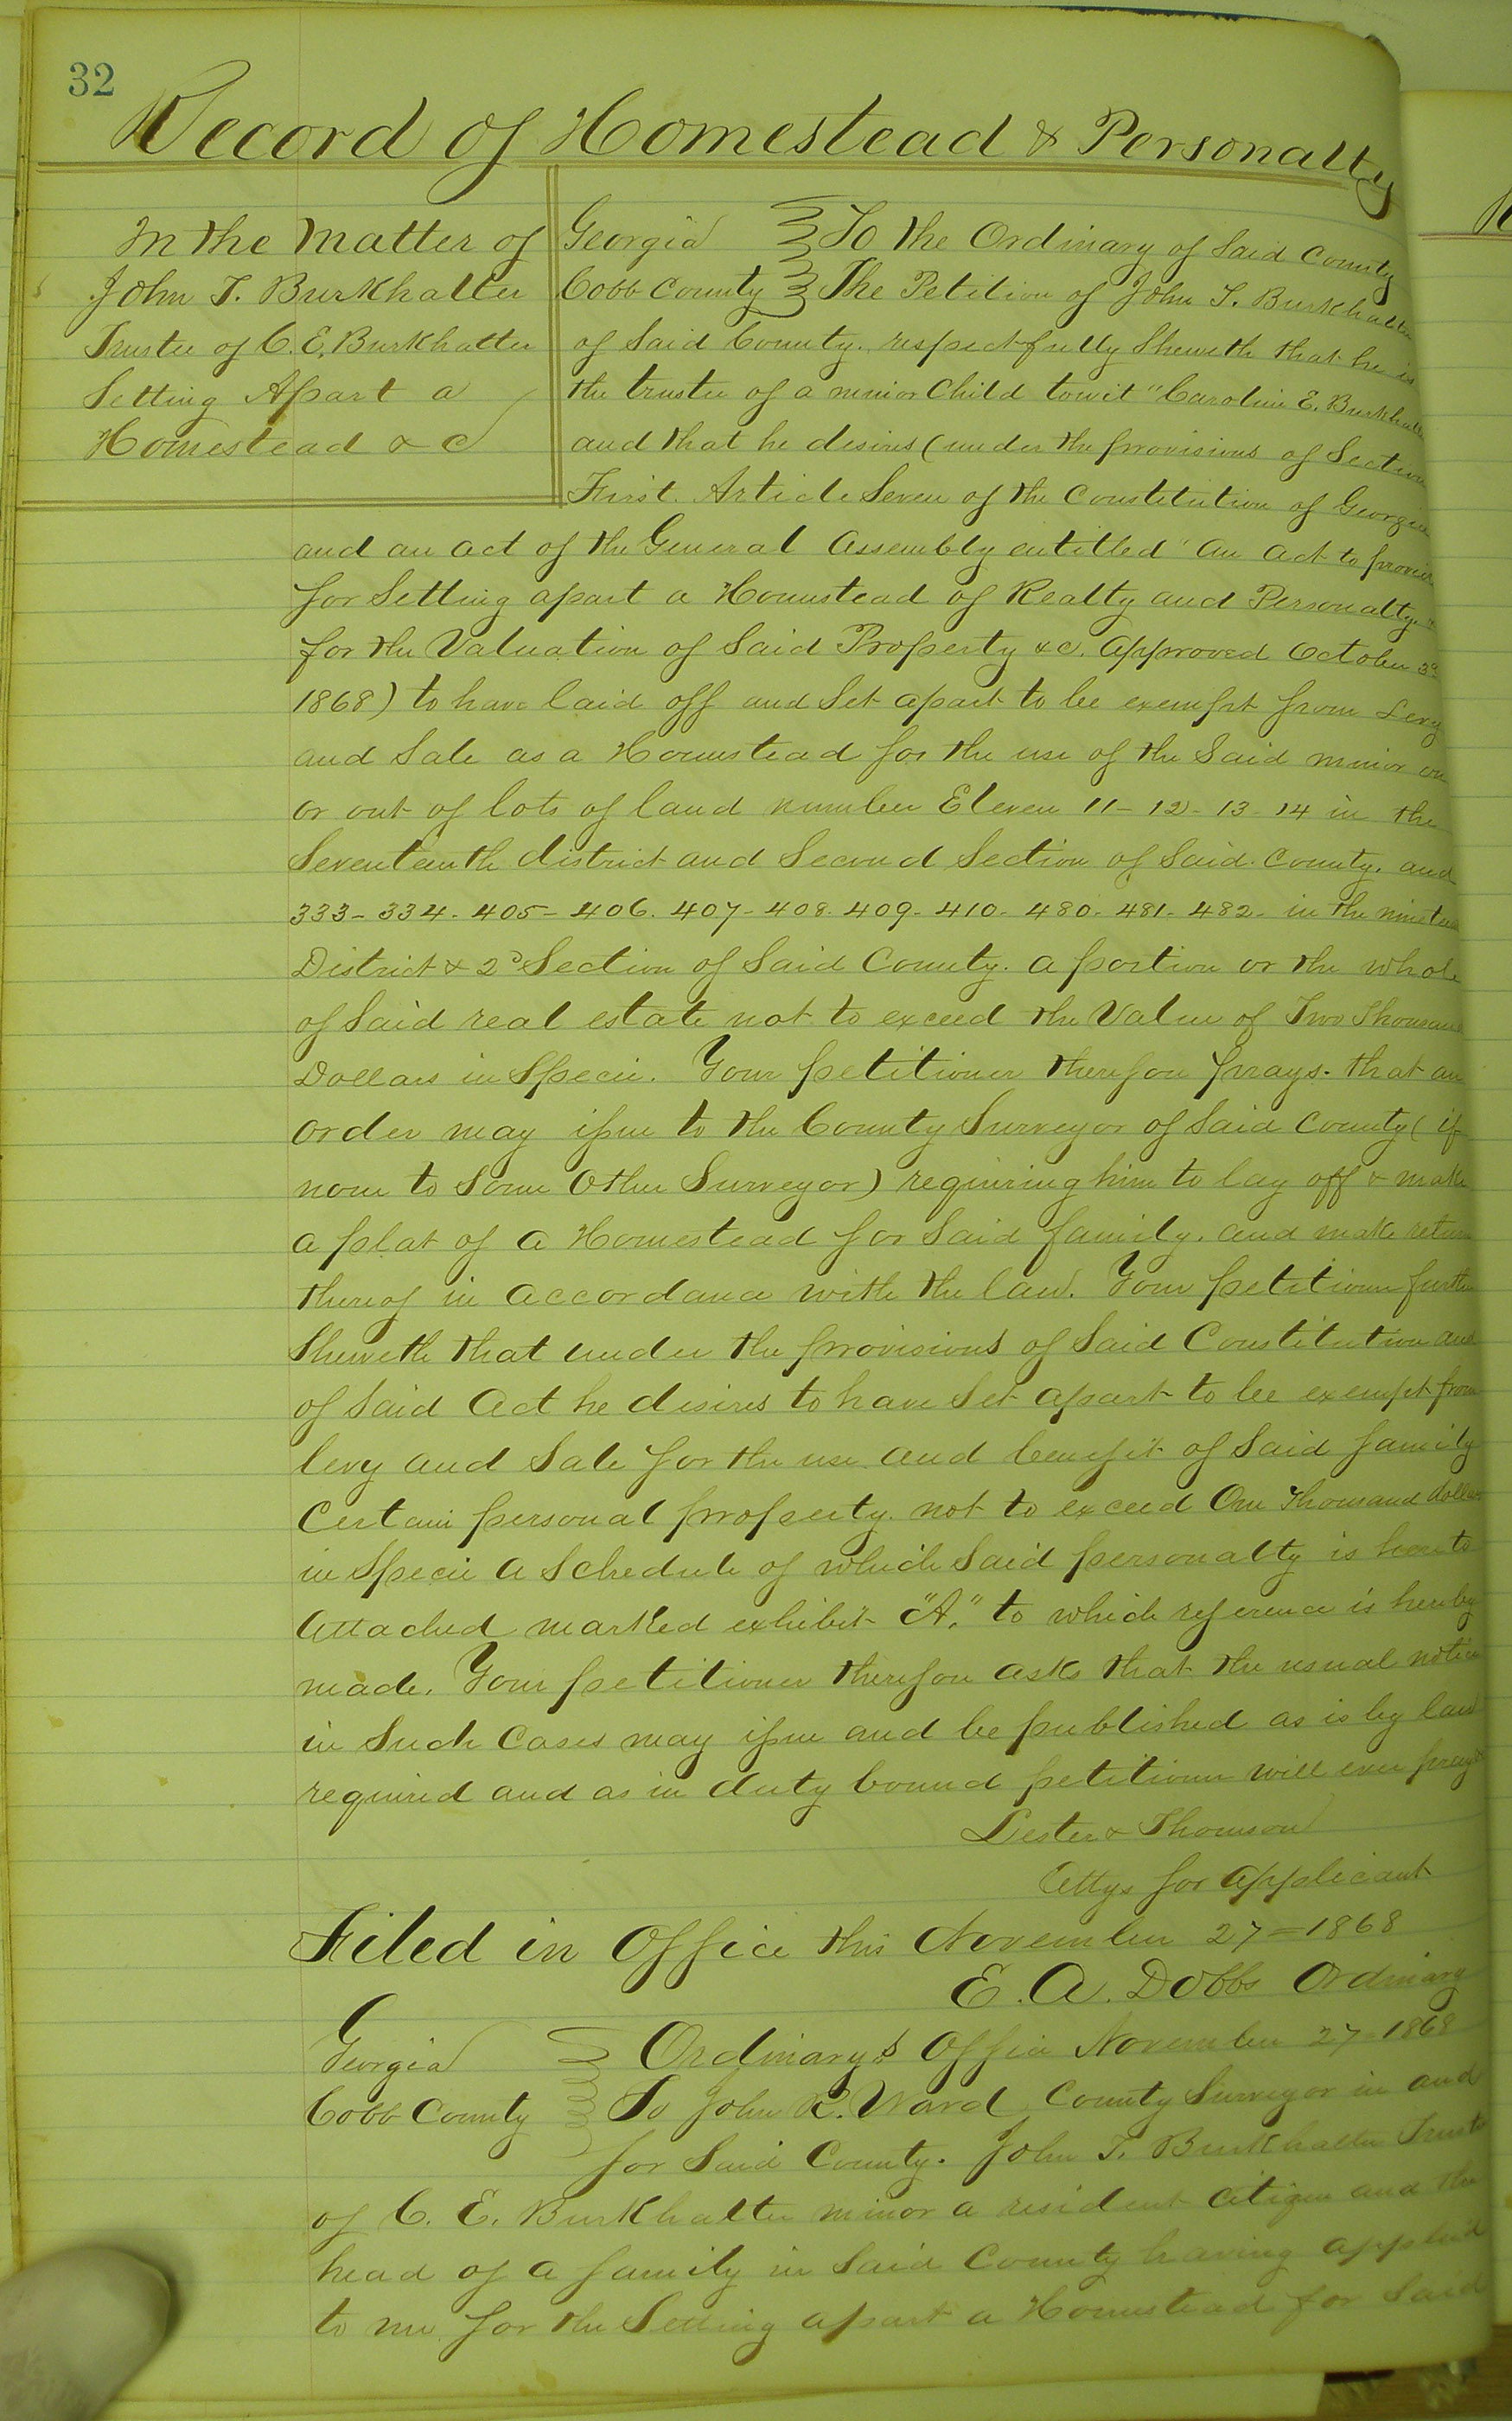 32
Record of Homestead & Personalty
In the Matter of
John T. Burkhalter
Trustee of C. E. Burkhalter
Setting Apart a
Homestead & c
Georgia To the Ordinary of Said County
Cobb County The Petition of John T. Burkhalter
of Said County. respectfully Sheweth that he is
the trustee of a minor Child towit "Caroline E. Burkhalter
and that he desires (under the provisions of Section
First. Article Seven of the Constitution of Georgia
and an act of the General Assembly entitled "An Act to provide
for Setting apart a Homestead of Realty and Personalty"
for the Valuation of Said Property &c. Approved October 3d
1868) to have laid off and Set apart to be exempt from Levy
and Sale as a Homestead for the use of the Said minor on
or out of lots of land number Eleven 11 - 12 - 13 - 14 in the
Seventeenth district and Second Section of Said County. and
333 - 334 - 405 - 406. 407 - 408. 409 - 410 - 480 - 481 - 482 - in the nineteen
District & 2d Section of Said County. a portion or the whole
of Said real estate not to exceed the Value of Two Thousand
Dollars in Specie. Your petitioner therefore prays. that an
order may issue to the County Surveyor of Said County (if
none to Some Other Surveyor) requiring him to lay off & make
a plat of a Homestead for Said family. and make return
thereof in accordance with the law. Your petitioner further
Sheweth that under the provisions of Said Constitution and
of Said Act he desires to have Set apart to be exempt from
levy and Sale for the use and benefit of Said family
Certain personal property. not to exceed One Thousand dollars
in Specie a Schedule of which Said personalty is hereto
Attached marked exhibit "A." to which reference is hereby
made. Your petitioner therefore asks that the usual notice
in Such Cases may issue and be published as is by law
required and as in duty bound petitioner will ever pray &
Lester & Thomson
Attys for Applicant
Filed in Office this November 27 = 1868
E. A. Dobbs Ordinary
Georgia Ordinary's Office November 27 = 1868
Cobb County To John R. Ward County Surveyor in and
for Said County. John T. Burkhalter Trustee
of C. E. Burkhalter minor a resident Citizen and the
head of a family in Said County having applied
to me for the Setting apart a Homestead for Said